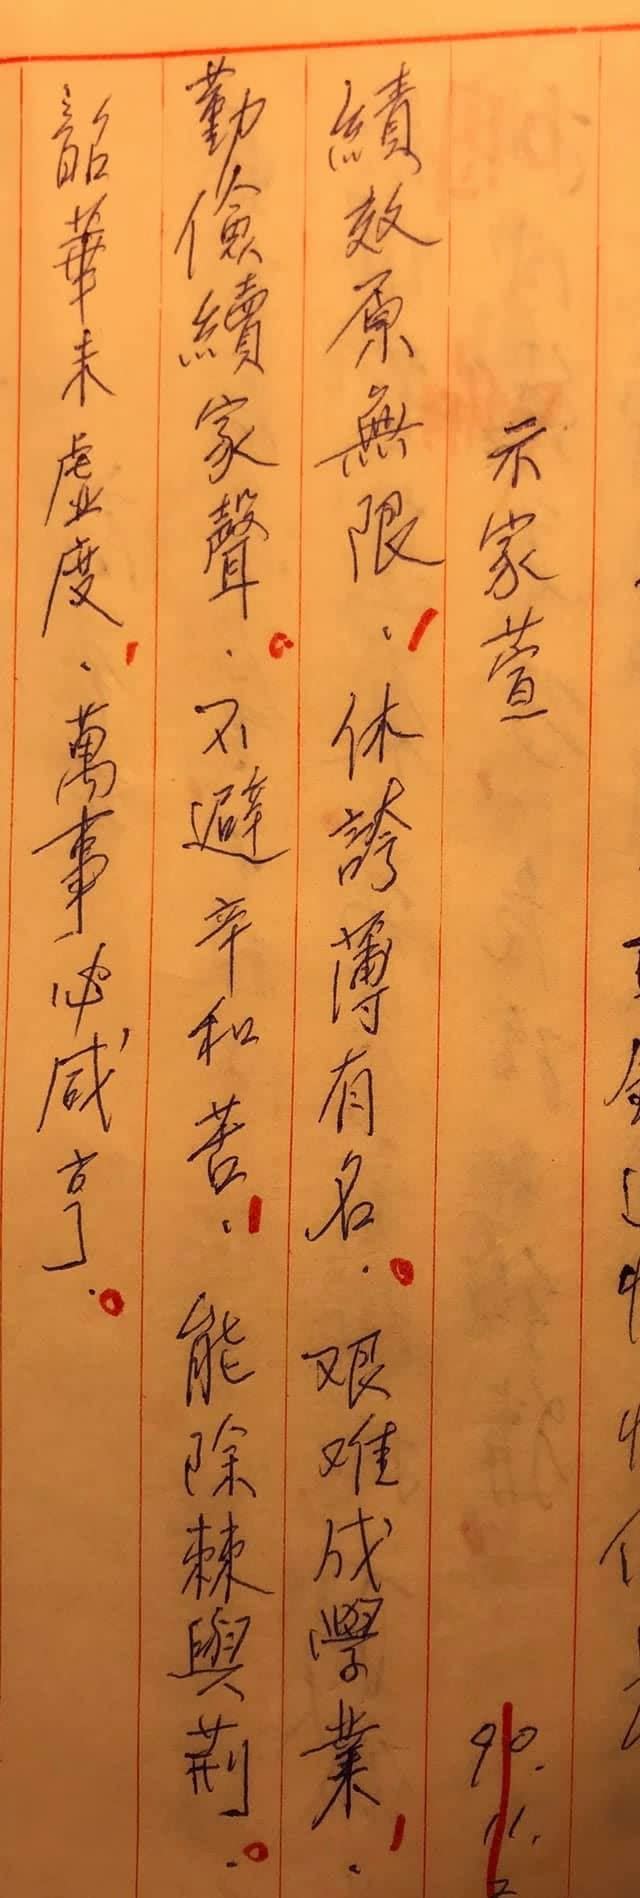 示家萱 90.11.2
績效原無限、休誇薄有名.艱难成學業.
勤儉續家聲.不避辛和苦、能除棘與荆.
韶華未虛度.萬事必咸亨.